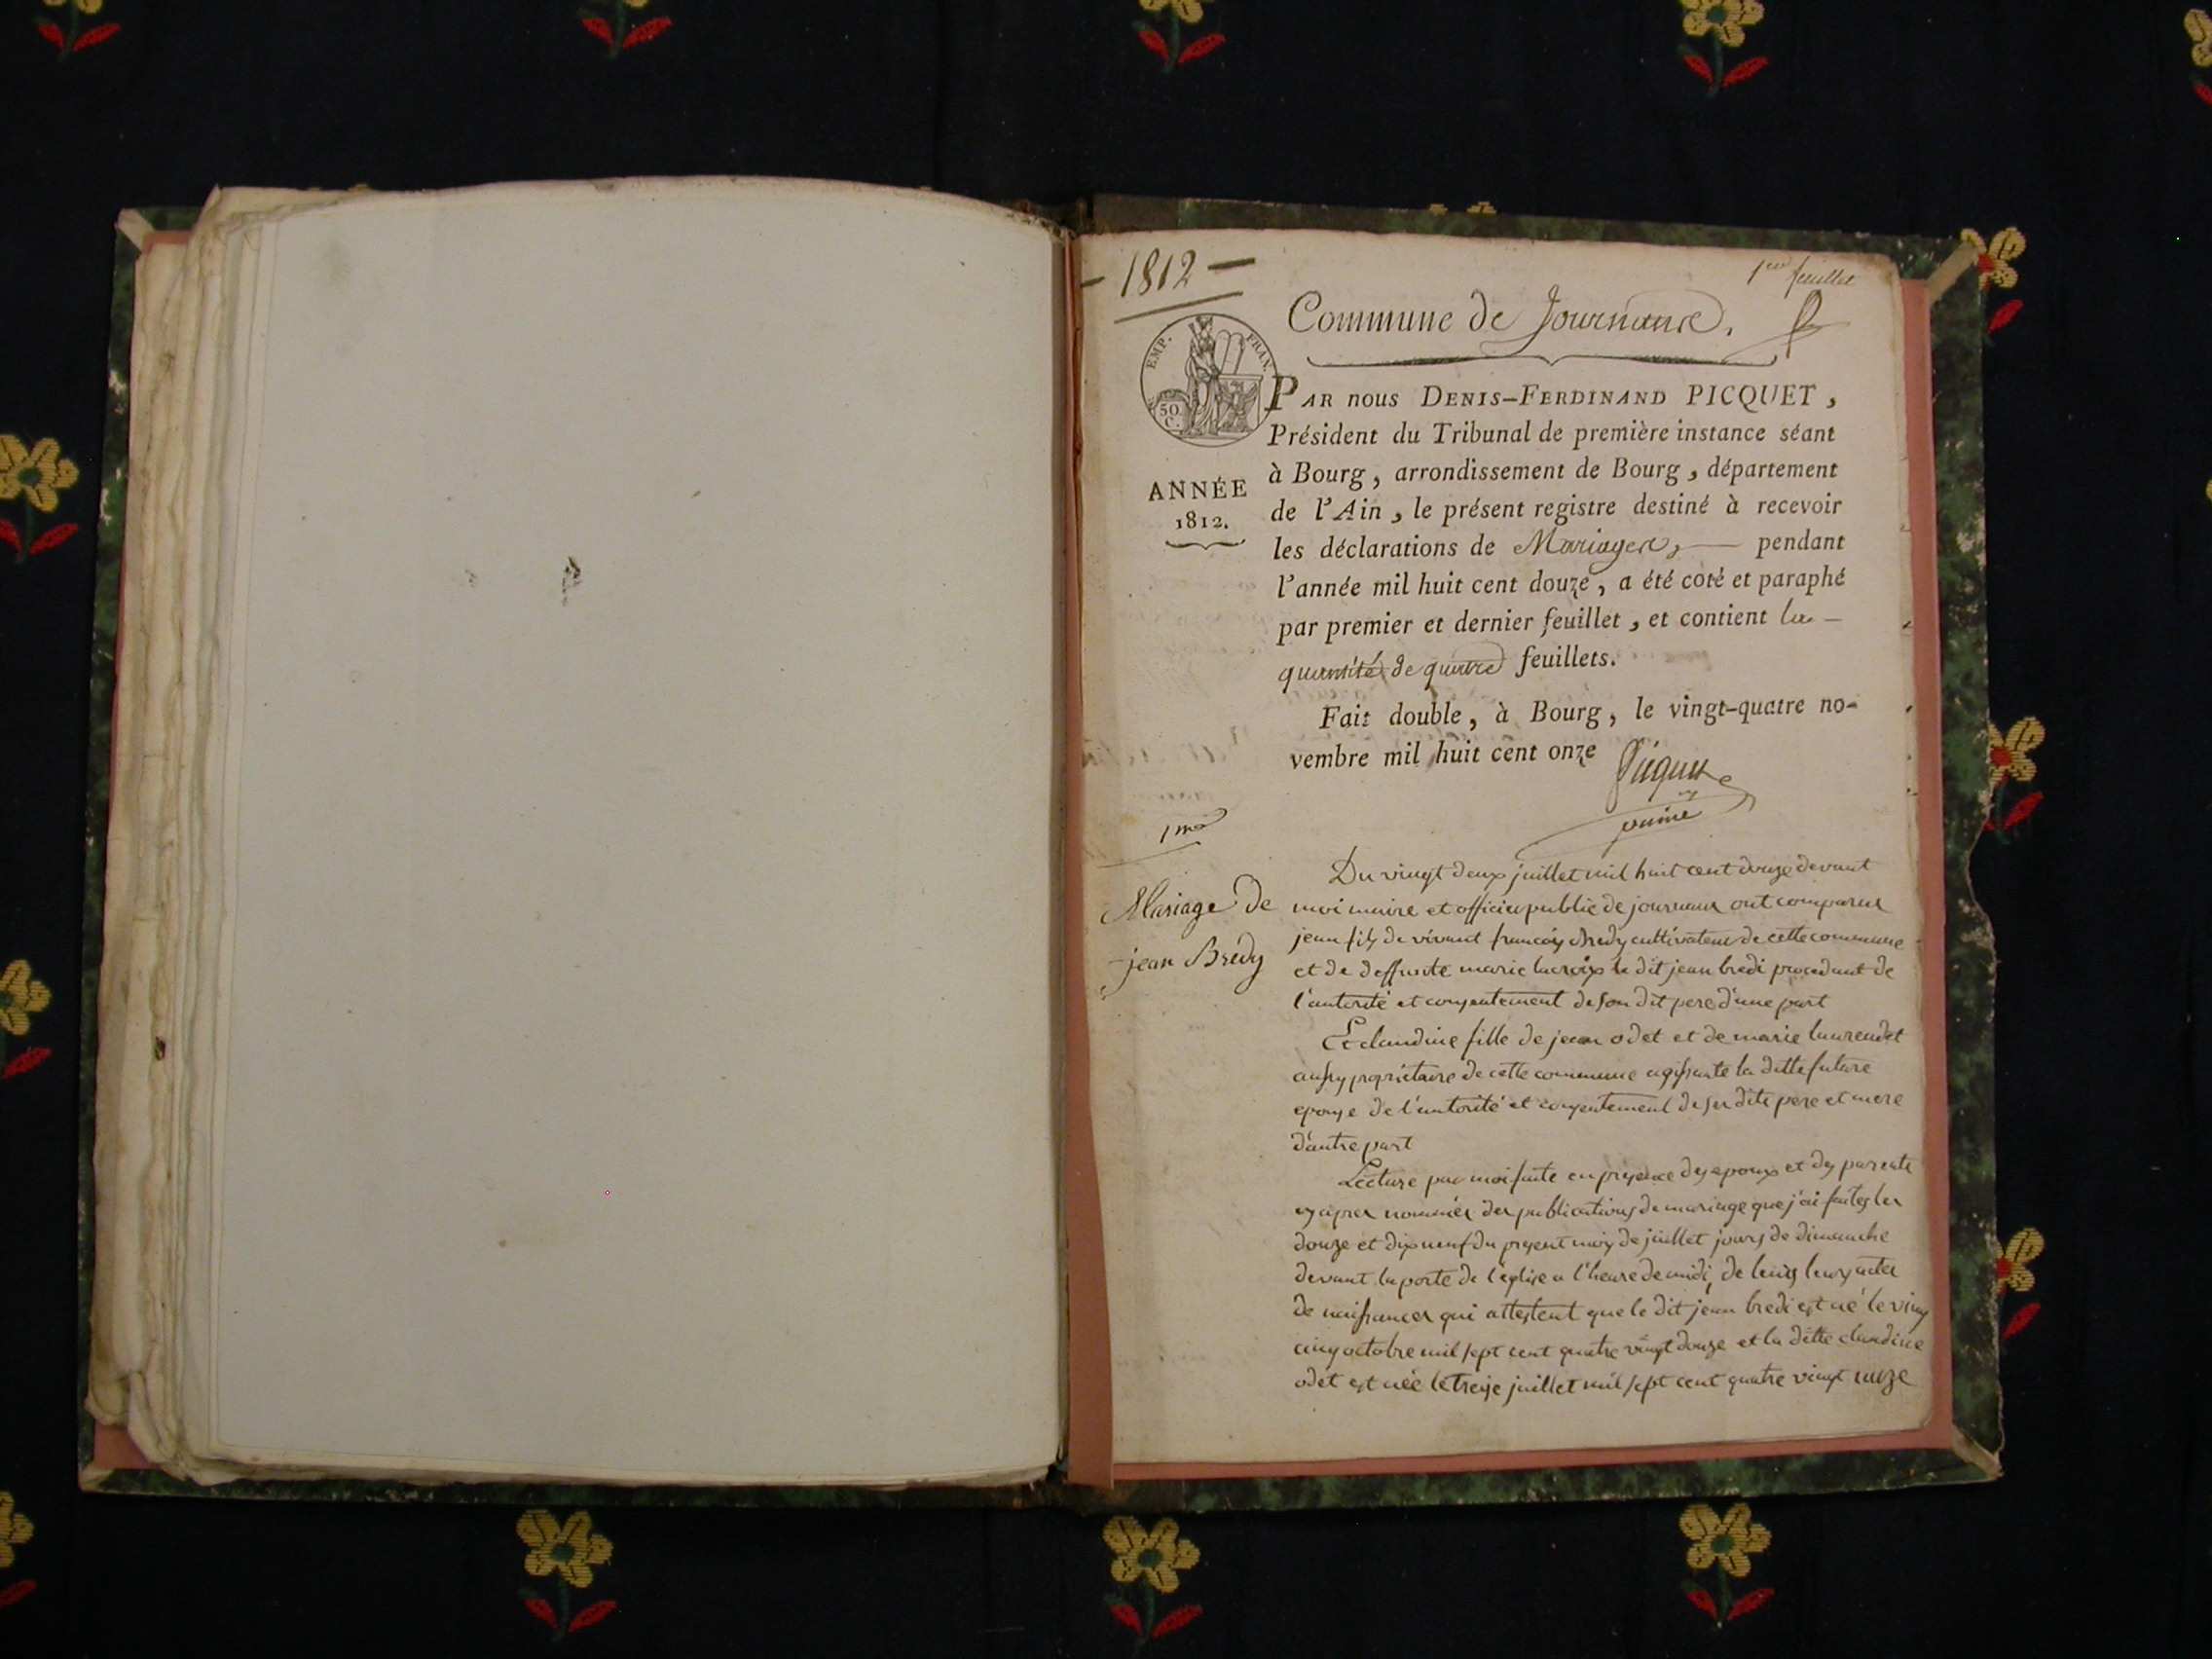 - 1812 -
1er feuillet
Commune de Journans.
EMP. FRAN.
50.
C.
PAR nous DENIS-FERDINAND PICQUET,
Président du Tribunal de première instance séant
à Bourg, arrondissement de Bourg, département
ANNÉE
1812.
de l'Ain, le présent registre destiné à recevoir
les déclarations de Mariages, — pendant
l'année mil huit cent douze, a été coté et paraphé
par premier et dernier feuillet, et contient la —
quantité de quatre feuillets.
Fait double, à Bourg, le vingt-quatre no-
vembre mil huit cent onze
Picquet
1me
Mariage de
jean Bredy
Du vingt deux juillet mil huit cent douze devant
moi maire et officier public de journans ont comparus
jean fils de vivant françois Bredy cultivateur de cette commune
et de deffunte marie lacroix le dit jean bredi procedant de
l'autorité et consentement de son dit pere d'une part
Et claudine fille de jean odet et de marie laurendet
aussy propriétaire de cette commune agissante la ditte future
epouse de l'autorité et consentement de ses dits pere et mere
d'autre part
Lecture par moi faite en presence des epoux et des parents
cy après nommés des publications de mariage que j'ai faites les
douze et dix neuf du present mois de juillet jours de dimanche
devant la porte de l'eglise a l'heure de midi, de leurs actes
de naissances qui attestent que le dit jean bredi est né le vingt
cinq octobre mil sept cent quatre vingt douze et la ditte claudine
odet est née le treize juillet mil sept cent quatre vingt onze